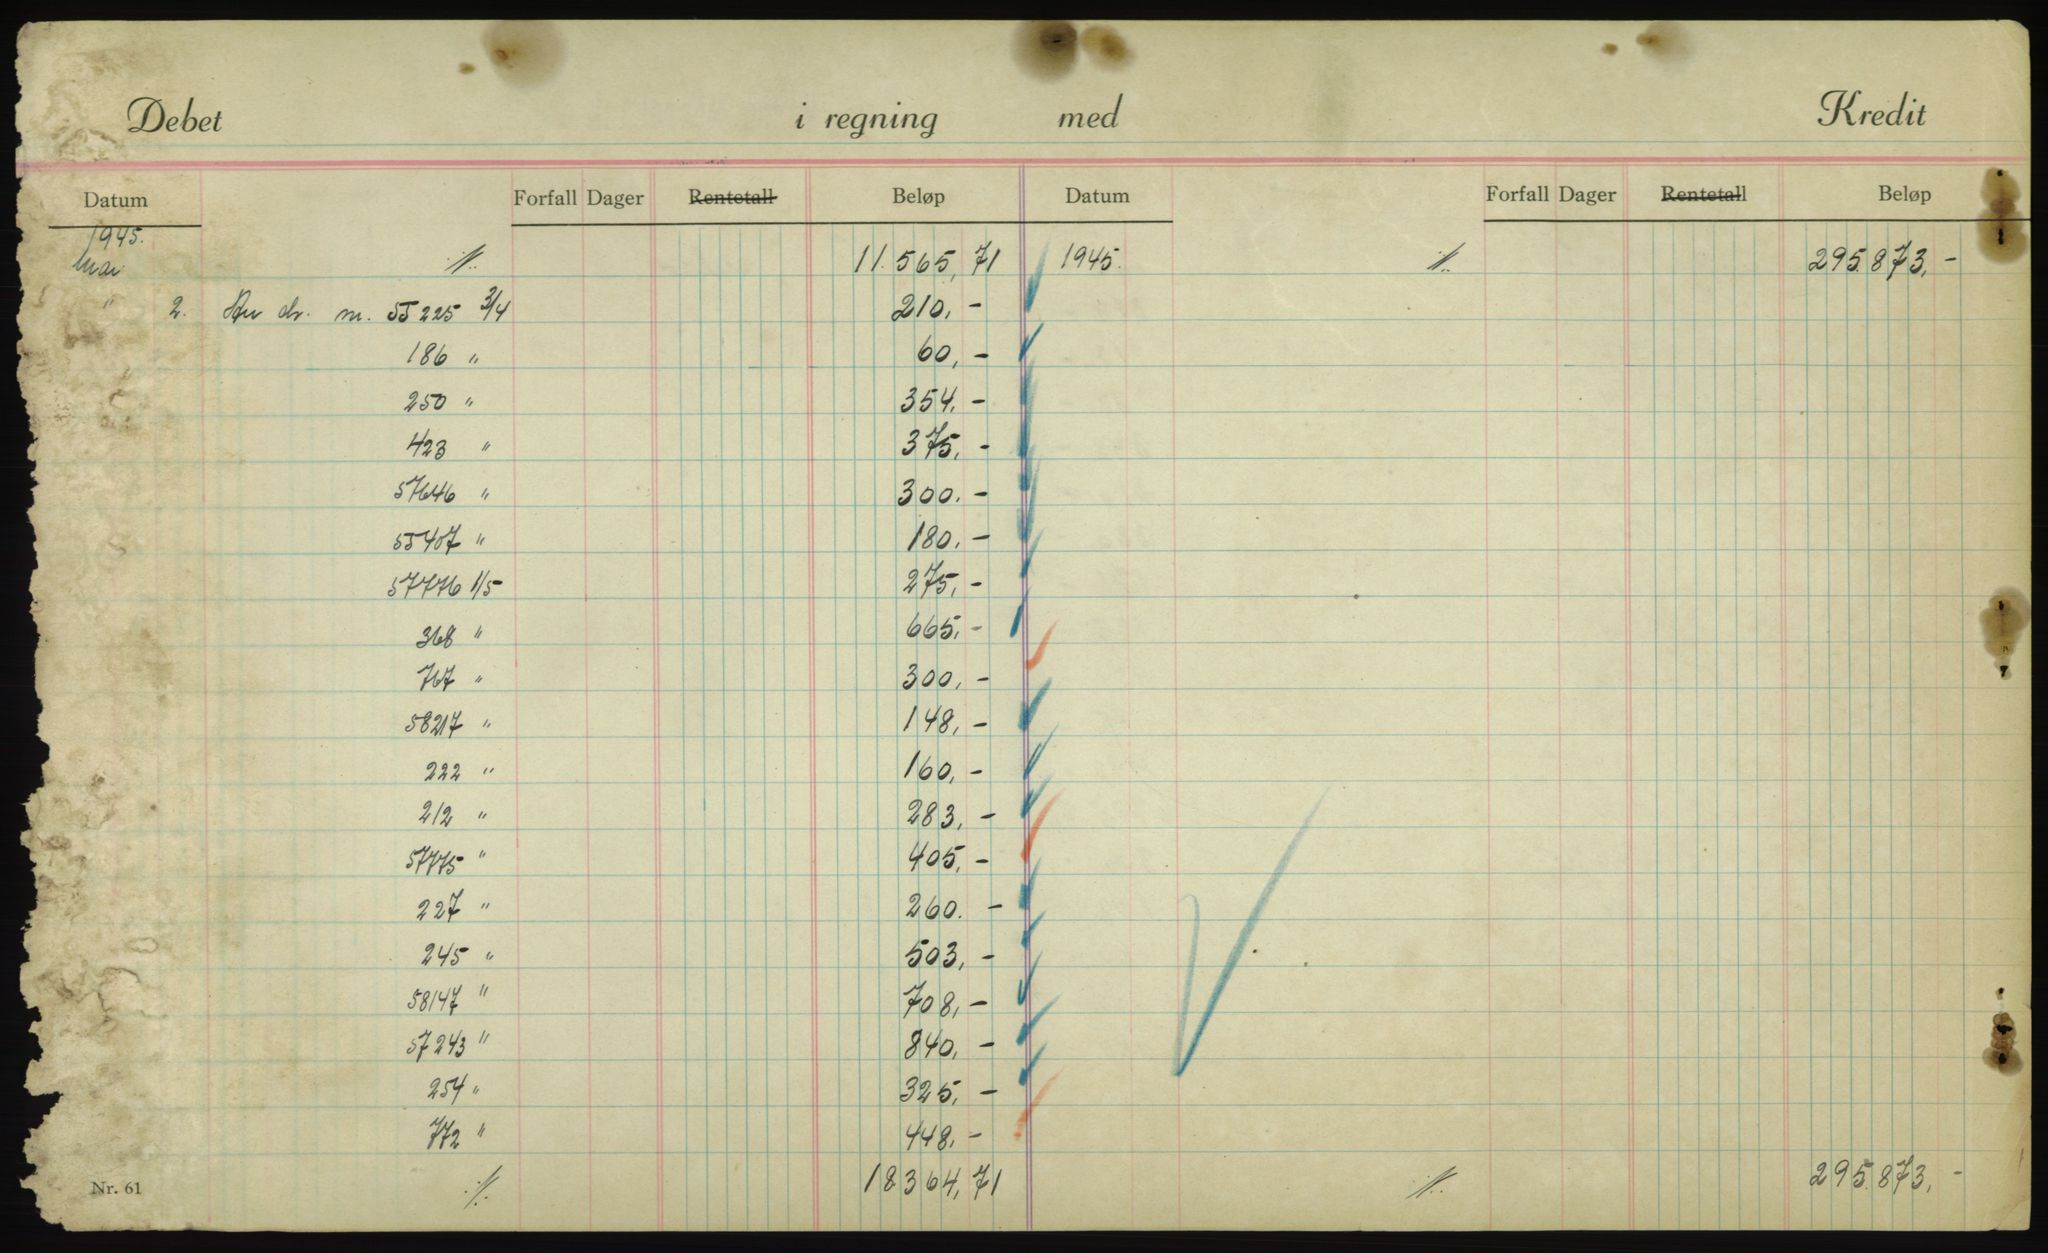 Debet i regning med Kredit
Datum Forfall Dager Rentetall Beløp Datum Forfall Dager Rentetall Beløp
1945.
Mai ·/·. 11.565,71 1945. ·/·. 295.873,-
" 2. An dr. nr. 55225 3/4 210,-
186 " 60,-
250 " 354,-
423 " 375,-
57646 " 300.-
55407 " 180.-
57776 1/5 275,-
368 " 665,-
767 " 300,-
58217 " 148,-
222 " 160,-
212 " 283,-
57775 " 405,-
227 " 260.-
245 " 503,-
58147 " 708,-
57243 " 840,-
254 " 325,-
772 " 448,-
Nr. 61 ·/·. 18364,71 ·/·. 295.873,-